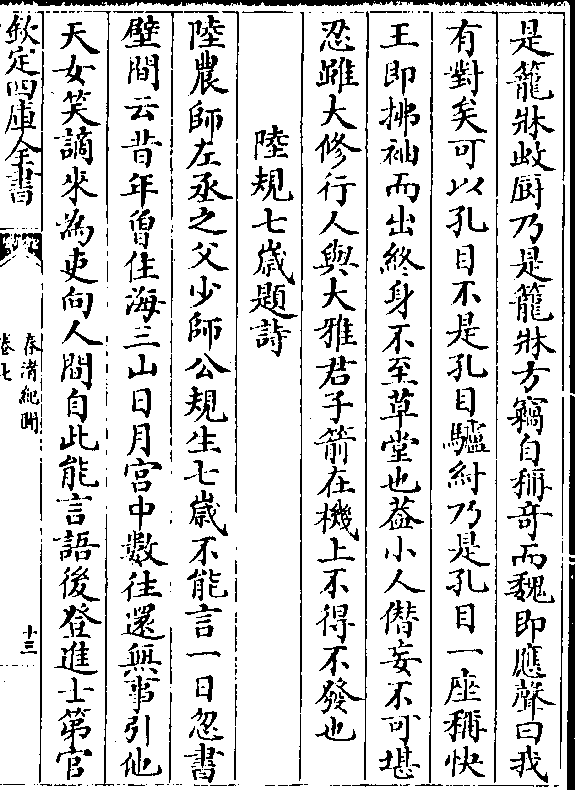 是籠牀此厨乃是籠牀方竊自稱奇而魏即應聲曰我
有對矣可以孔目不是孔目驢紂乃是孔目一座稱快
王即拂袖而出終身不至草堂也葢小人僣妄不可堪
忍雖大修行人與大雅君子箭在機上不得不發也
陸規七歲題詩
陸農師左丞之父少師公規生七歲不能言一日忽書
壁間云昔年曽住海三山日月宫中數往還無事引他
天女笑謫來為吏向人間自此能言語後登進士第官
欽定四庫全書
春渚紀聞
卷七
十三